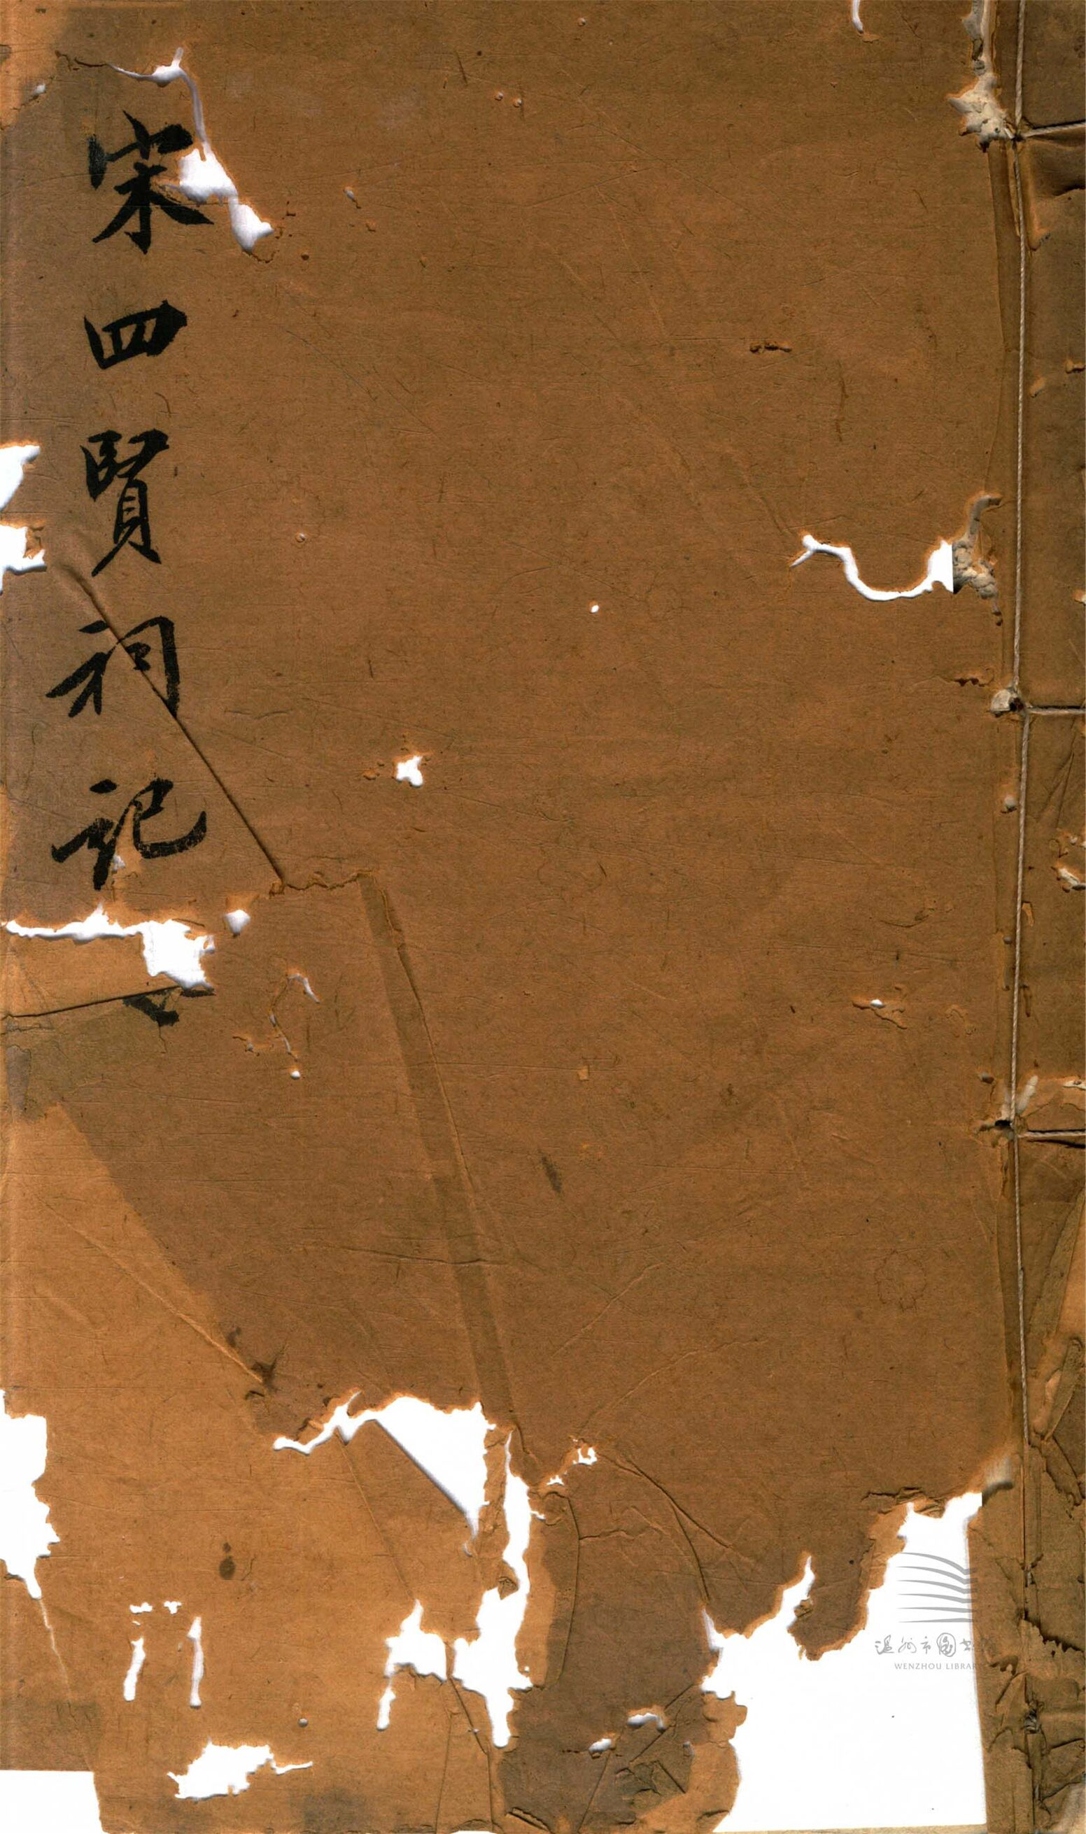 宋四賢祠記
温州市圖書館
WENZHOU LIBRARY